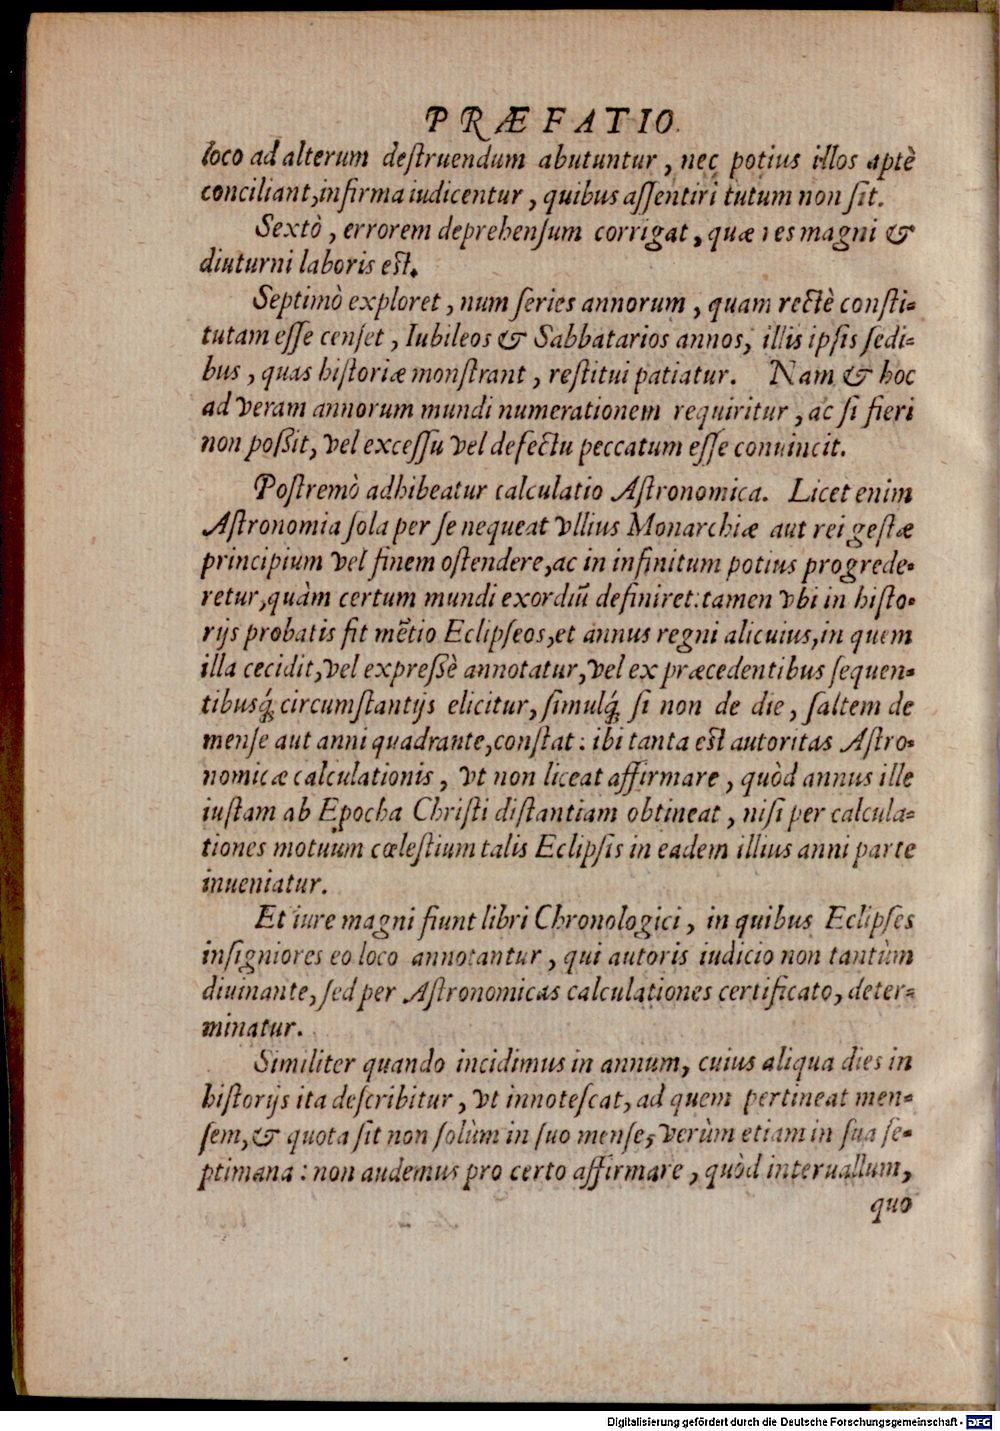 PRÆFATIO.
loco ad alterum deſtruendum abutuntur, nec potius illos aptè
conciliant, infirma iudicentur, quibus aſſentiri tutum non ſit.
Sextò, errorem deprehenſum corrigat, quæ res magni &
diuturni laboris eſt.
Septimò exploret, num ſeries annorum, quam rectè conſti=
tutam eſſe cenſet, Iubileos & Sabbatarios annos, illis ipſis ſedi=
bus, quas hiſtoriæ monſtrant, reſtitui patiatur. Nam & hoc
ad veram annorum mundi numerationem requiritur, ac ſi fieri
non poßit, vel exceſſu vel defectu peccatum eſſe conuincit.
Poſtremò adhibeatur calculatio Aſtronomica. Licet enim
Aſtronomia ſola per ſe nequeat vllius Monarchiæ aut rei geſtæ
principium vel finem oſtendere, ac in infinitum potius progrede=
retur, quàm certum mundi exordiū definiret: tamen vbi in hiſto=
rijs probatis fit mētio Eclipſeos, et annus regni alicuius, in quem
illa cecidit, vel expreßè annotatur, vel ex præcedentibus ſequen=
tibusq́; circumſtantijs elicitur, ſimulq́; ſi non de die, ſaltem de
menſe aut anni quadrante, conſtat: ibi tanta eſt autoritas Aſtro=
nomicæ calculationis, vt non liceat affirmare, quòd annus ille
iuſtam ab Epocha Chriſti diſtantiam obtineat, niſi per calcula=
tiones motuum cœleſtium talis Eclipſis in eadem illius anni parte
inueniatur.
Et iure magni fiunt libri Chronologici, in quibus Eclipſes
inſigniores eo loco annotantur, qui autoris iudicio non tantùm
diuinante, ſed per Aſtronomicas calculationes certificato, deter=
minatur.
Similiter quando incidimus in annum, cuius aliqua dies in
hiſtorijs ita deſcribitur, vt innoteſcat, ad quem pertineat men=
ſem, & quota ſit non ſolùm in ſuo menſe, verùm etiam in ſua ſe=
ptimana: non audemus pro certo affirmare, quòd interuallum,
quo
Digitalisierung gefördert durch die Deutsche Forschungsgemeinschaft - DFG